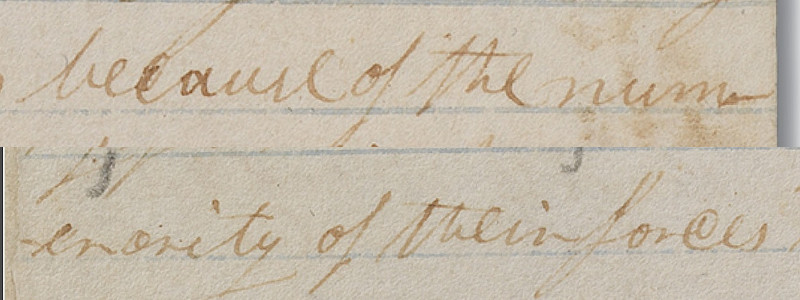 because of the num-
-enority of their forces